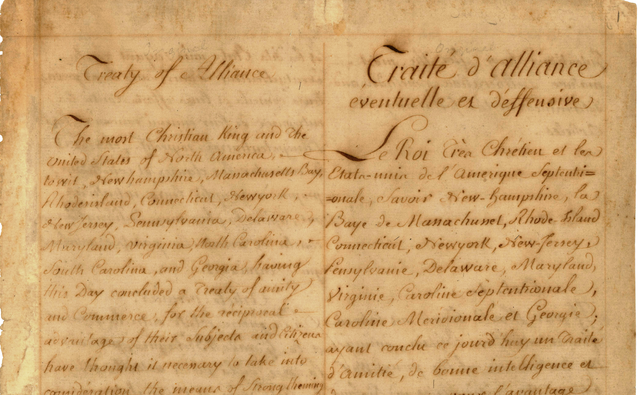 Treaty of Alliance
The most Christian King and the
United States of North America,
to wit, Newhampshire, Massachusetts Bay,
Rhodeisland, Connecticut, Newyork,
New Jersey, Pennsylvania, Delaware,
Maryland, Virginia, North Carolina,
South Carolina, and Georgia, having
this Day concluded a Treaty of amity
and Commerce, for the reciprocal
advantage of their Subjects and Citizens
have thought it necessary to take into
consideration the means of strengthening
Traité d'alliance
éventuelle et déffensive
Le Roi Très Chrêtien et les
Etats-unis de l'Amerique Septentri=
=onale, Savoir New-hampshire, la
Baye de Massachusset, Rhode-Island
Connecticut, Newyork, New-Jersey,
Pensylvanie, Delaware, Maryland,
Virginie, Caroline Septentrionale,
Caroline Meridionale et Georgie,
ayant conclu ce jourd'huy un Traité
d'Amitié, de bonne intelligence et
l'avantage